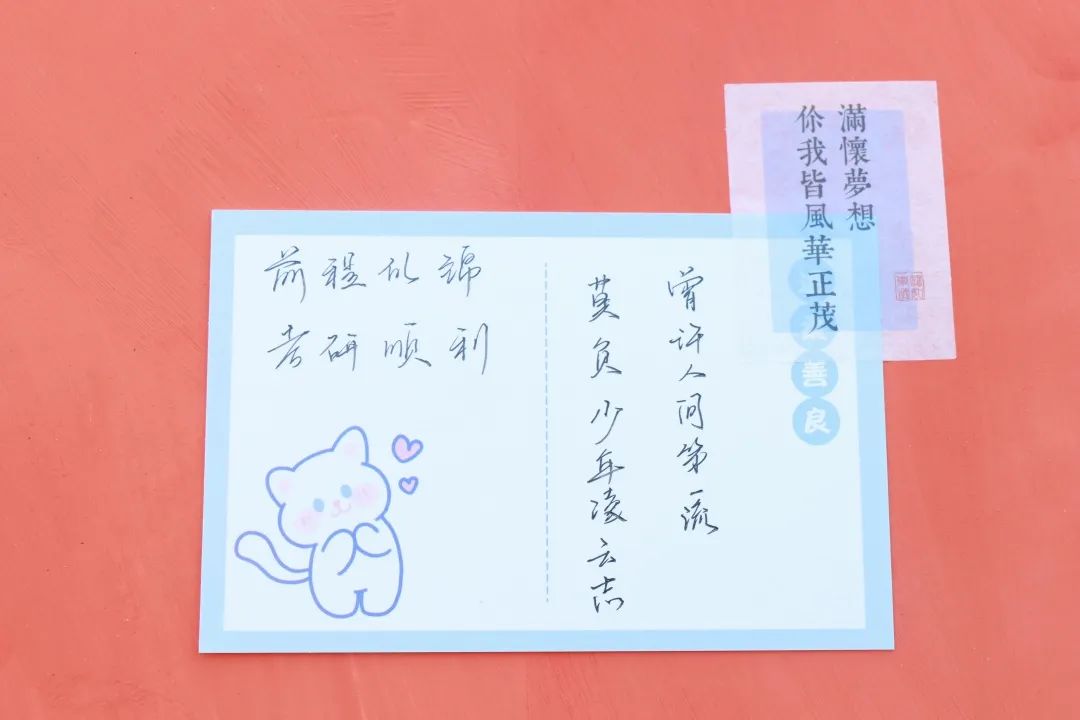 滿懷夢想
伱我皆風華正茂
善良
前程似锦
考研顺利
曾许人间第一流
莫负少年凌云志